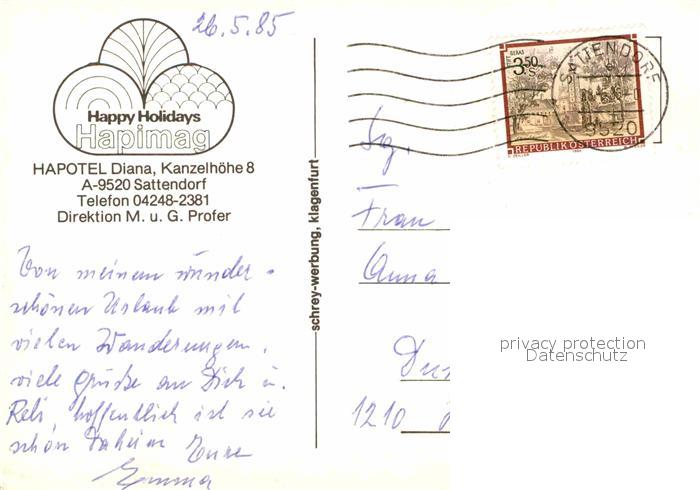 26.5.85
Happy Holidays
Hapimag
HAPOTEL Diana, Kanzelhöhe 8
A-9520 Sattendorf
Telefon 04248-2381
Direktion M. u. G. Profer
Von meinem wunder-
schönen Urlaub mit
vielen Wanderungen,
viele Grüße an Dich u.
hoffentlich ist sie
schön daheim Eure
Emma
schrey-werbung, klagenfurt
GERAS
3.50
S
REPUBLIK ÖSTERREICH
SATTENDORF
9520
Sg.
Frau
Anna
1210
privacy protection
Datenschutz